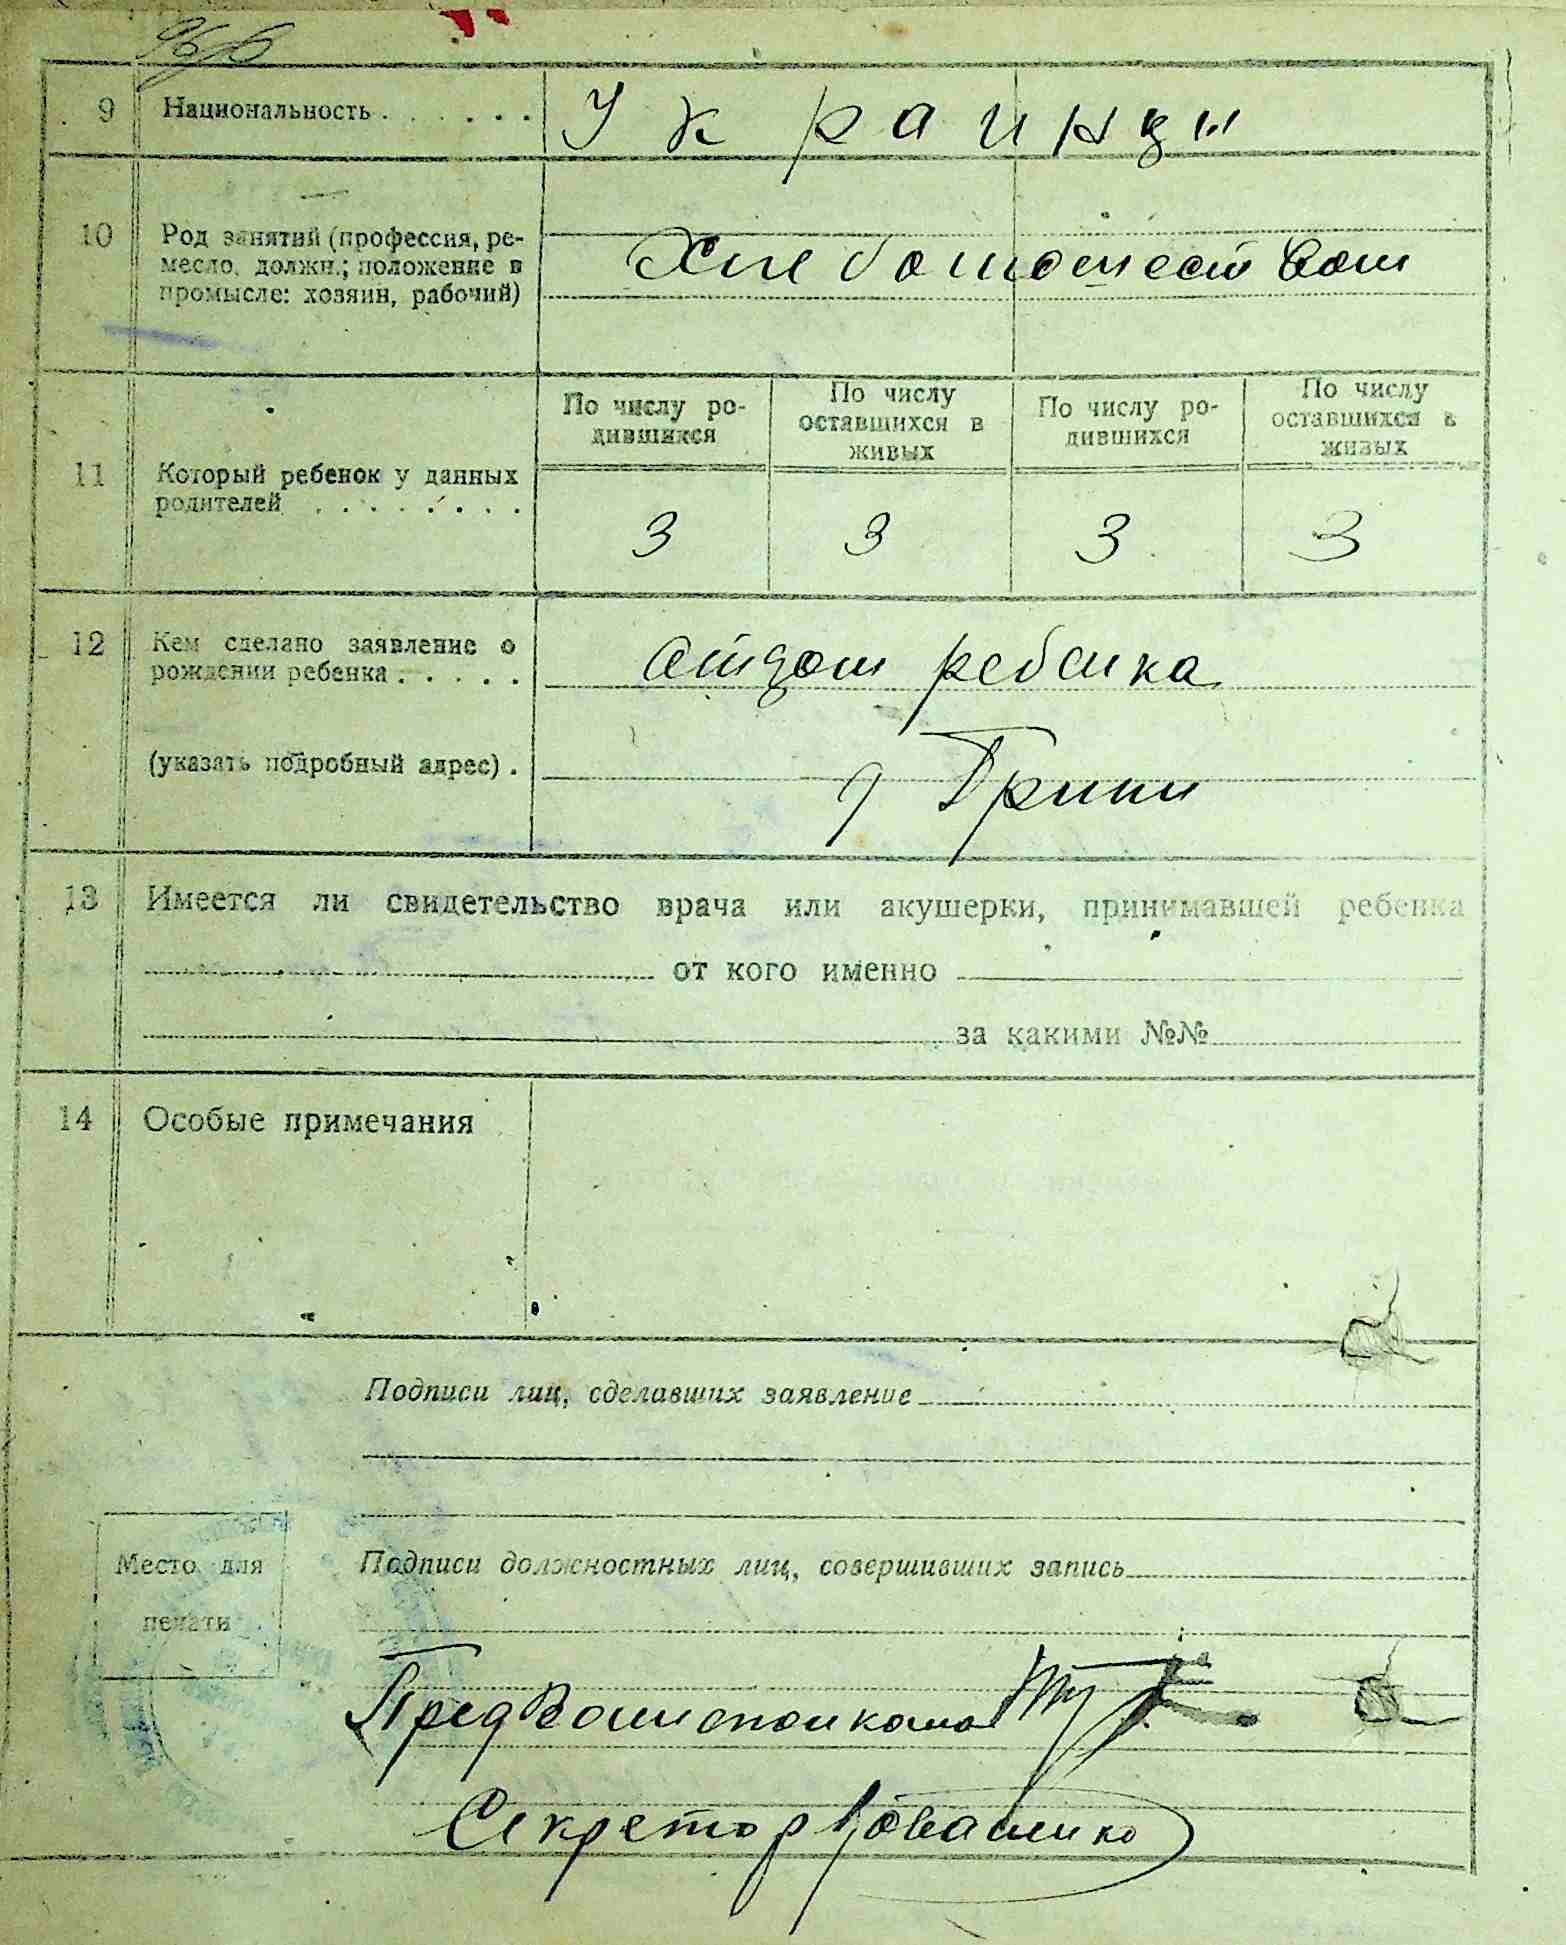 9 Национальность . . . . . . Украинцы
10 Род занятий (профессия, ре-
месло, должн.; положение в
промысле: хозяин, рабочий)
Хлебопашеством
По числу ро-
дившихся
По числу
оставшихся в
живых
По числу ро-
дившихся
По числу
оставшихся в
живых
11 Который ребенок у данных
родителей . . . . . . . .
3 3 3 3
12 Кем сделано заявление о
рождении ребенка . . . . . отцом ребенка
(указать подробный адрес) .
13 Имеется ли свидетельство врача или акушерки, принимавшей ребенка
от кого именно
за какими №№
14 Особые примечания
Подписи лиц, сделавших заявление
Место для
печати
Подписи должностных лиц, совершивших запись
Пред
Секретар